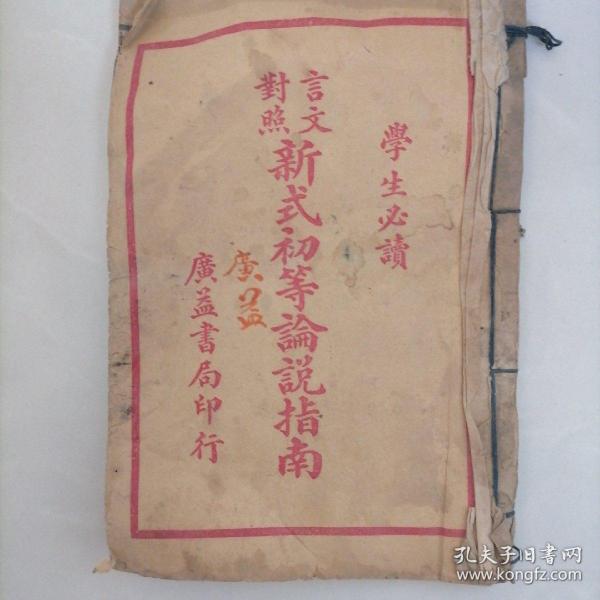 學生必讀
言文
對照
新式初等論説指南
廣益
廣益書局印行
孔夫子旧书网
www.kongfz.com